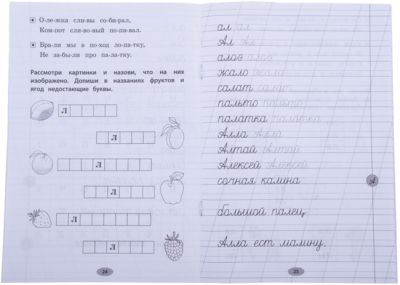 О-ле-жка сли-вы со-би-рал,
Ком-пот сли-во-вый по-пи-вал.
Вра-ля мы в по-ход ло-па-тку,
Не за-бы-ли про па-ла-тку.
Рассмотри картинки и назови, что на них
изображено. Допиши в названиях фруктов и
ягод недостающие буквы.
Л
Л
Л
Л
Л
Л
24
ал ал
Ал Ал
алоэ алоэ
жало жало
салат салат
пальто пальто
палатка палатка
Алла Алла
Алтай Алтай
Алексей Алексей
сочная калина
большой палец
Алла ест малину.
25